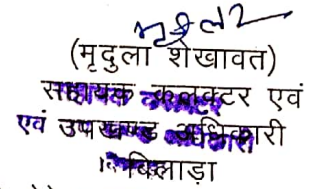 (मृदुला शेखावत)
सहायक कलेक्टर एवं
एवं उपखण्ड अधिकारी
बिलाड़ा